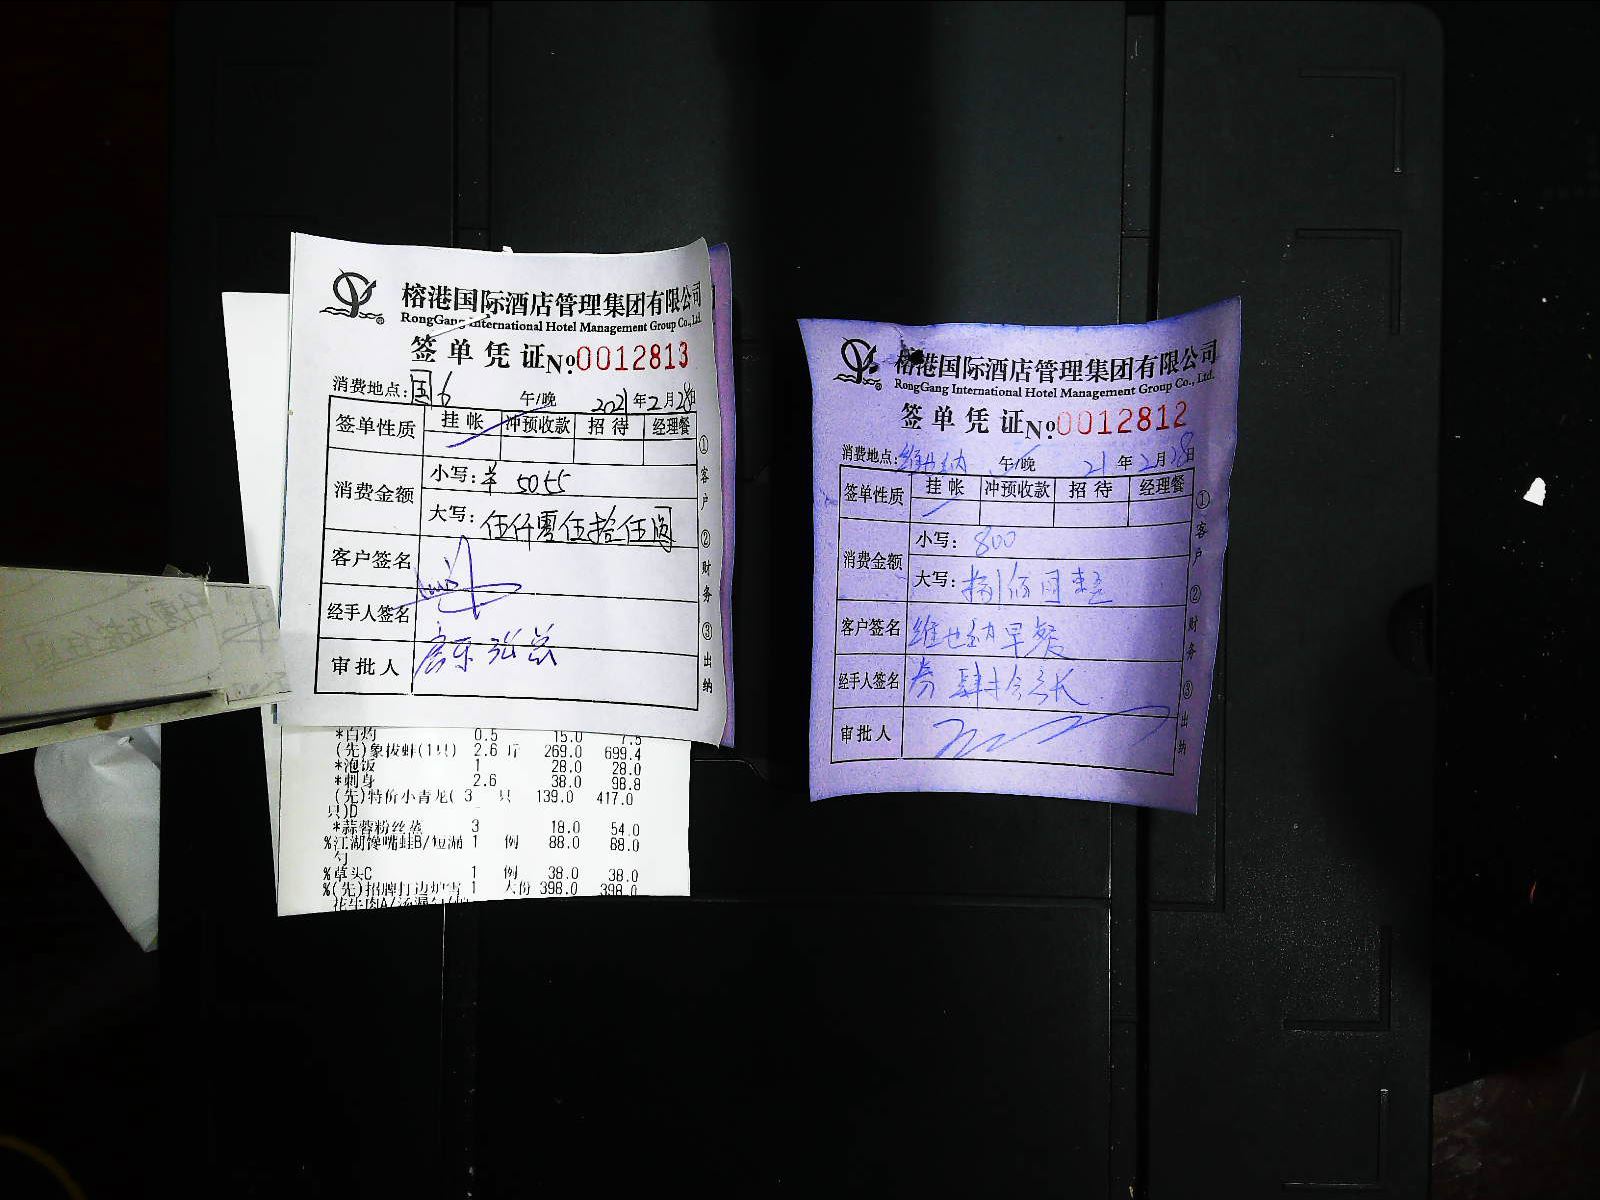 榕港国际酒店管理集团有限公司
RongGang International Hotel Management Group Co., Ltd.
签单凭证 No.0012813
消费地点：国6 午/晚 2021年2月28日
签单性质 挂帐 冲预收款 招待 经理餐
消费金额 小写：羊 5055
大写：伍仟零伍拾伍圆
客户签名
经手人签名
审批人
①客户 ②财务 ③出纳
*白灼 0.5 15.0 7.5
(先)象拔蚌(1只) 2.6 斤 269.0 699.4
*泡饭 1 28.0 28.0
*刺身 2.6 38.0 98.8
(先)特价小青龙( 3 只 139.0 417.0
只)D
*蒜蓉粉丝蒸 3 18.0 54.0
%江湖馋嘴蛙B/短漏 1 例 88.0 88.0
勺
%草头C 1 例 38.0 38.0
%(先)招牌打边炉 1 大份 398.0 398.0
榕港国际酒店管理集团有限公司
RongGang International Hotel Management Group Co., Ltd.
签单凭证 No.0012812
消费地点：维也纳 午/晚 21年2月28日
签单性质 挂帐 冲预收款 招待 经理餐
消费金额 小写：800
大写：捌佰圆整
客户签名 维也纳早餐
经手人签名
审批人
①客户 ②财务 ③出纳